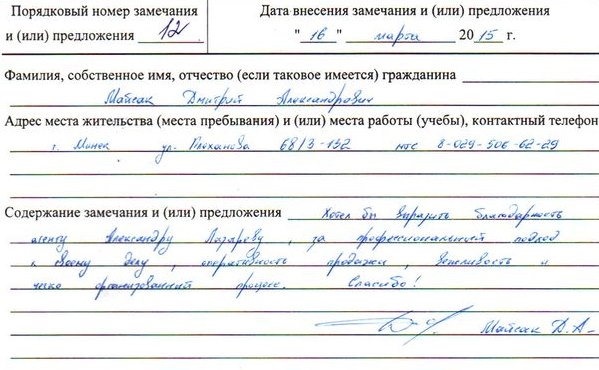 Порядковый номер замечания
и (или) предложения 12
Дата внесения замечания и (или) предложения
" 16 " марта 2015 г.
Фамилия, собственное имя, отчество (если таковое имеется) гражданина
Майсак Дмитрий Александрович
Адрес места жительства (места пребывания) и (или) места работы (учебы), контактный телефон
г. Минск ул. Плеханова 68/3-132 мтс 8-029-506-62-29
Содержание замечания и (или) предложения Хотел бы выразить благодарность
агенту Александру Лазареву, за профессиональный подход
к своему делу, оперативность продажи, вежливость и
четко организованный процесс. Спасибо!
Майсак Д.А-